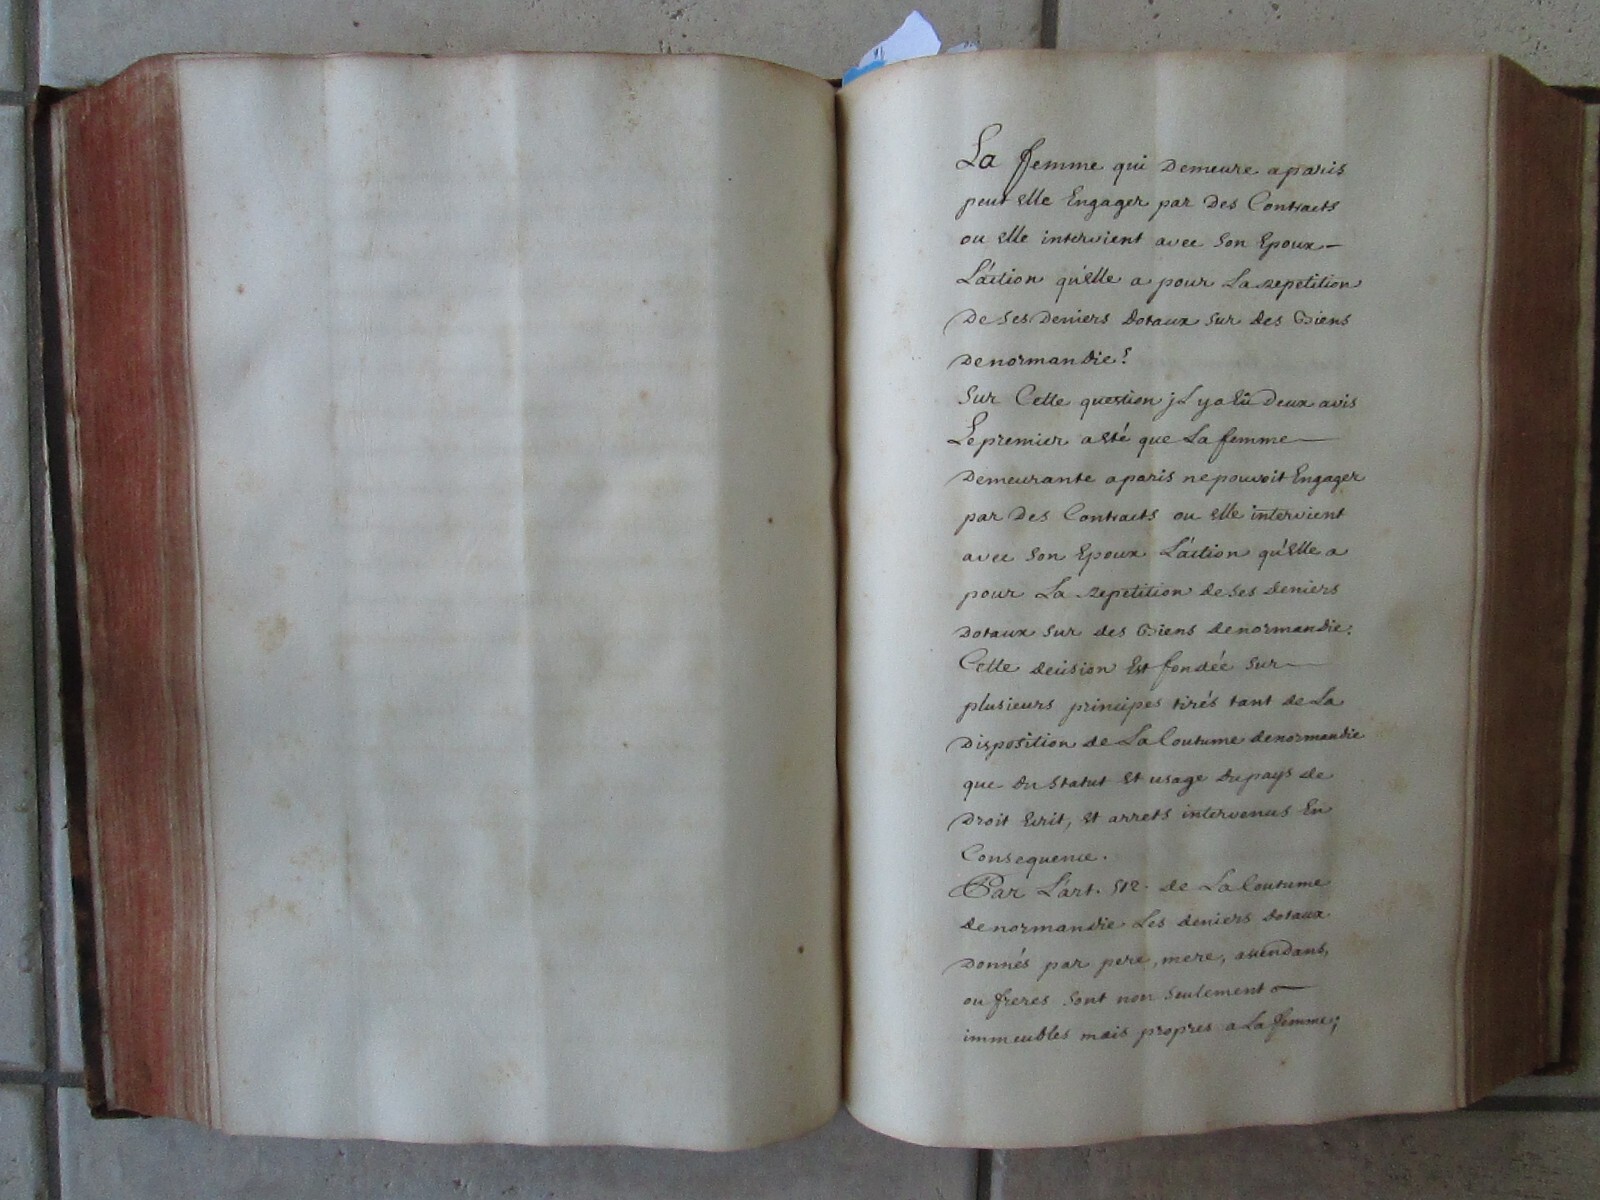 La femme qui Demeure aparis
peut elle Engager par Des Contracts
ou elle intervient avec Son Epoux
L'action qu'Elle a pour La repetition
De Ses Deniers Dotaux Sur des Biens
De normandie?
Sur Cette question jL y a Eû Deux avis
Le premier a esté que La femme
Demeurante a paris ne pouvoit Engager
par Des Contracts ou elle intervient
avec Son Epoux L'action qu'Elle a
pour La repetition de Ses deniers
Dotaux Sur des Biens de normandie.
Cette decision Est fondée Sur
plusieurs principes tirés tant de La
Disposition de La Coutume de normandie
que du Statut Et usage du pays de
Droit Ecrit, Et arrets intervenus En
Consequence.
Par L'art. 512. de La Coutume
de normandie Les deniers dotaux
Donnés par pere, mere, ascendans,
ou freres Sont non Seulement
immeubles mais propres a La femme;